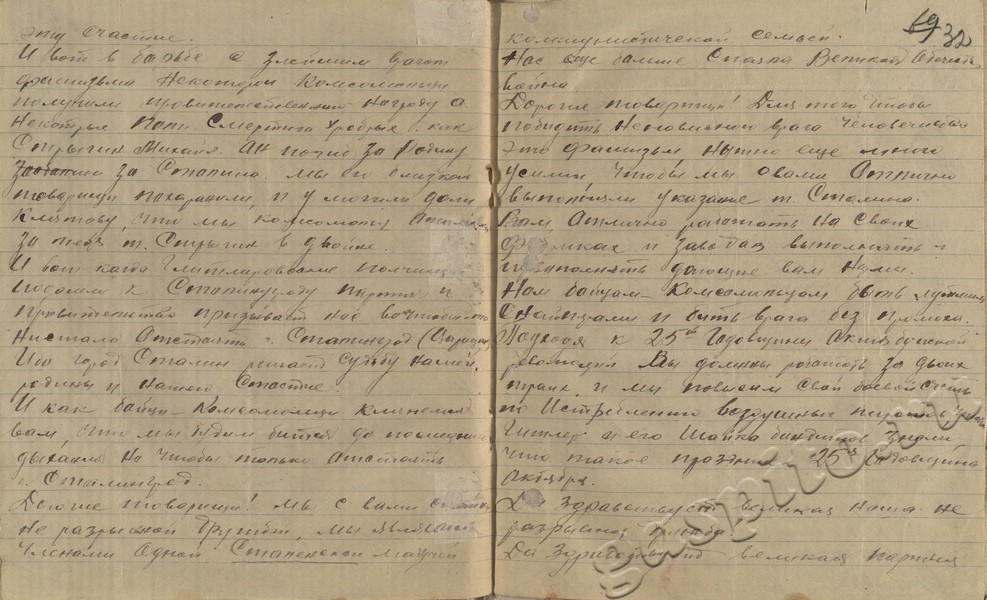 эту счастие.
И вот в борьбе с злейшим врагом
фашизьма некоторые комсомольцы
получили провительственную награду а
некоторые пали смертью храбрых. как
Стрыгин Михайл. Он погиб за Родину
за Сталина. мы его близкои
товарищи похаранили, и у могили дали
клятову, что мы комсомольцы
за тебя т. Стрыгин в двойне.
И вот когда Гитлировские полчища
подошли к Сталинграду партия и
провительство призывает нас во чтобы то
нистало отстоять г. Сталинград
Что город Сталин решает судьбу нашей
родины и нашего счастие
И как бойцы-комсомольци клянемся
вам, что мы будим битса до последнего
дыхания но чтобы только отстоять
г. Сталинград.
Дорогие товарищи! мы с вами
не разрывной дружбой, мы являемся
членами одной Сталенской
коммунистической семьей.
Нас еще больше спаяла Великая Отечеств
война.
Дорогие товарищи! Для того чтобы
победить ненавистного врага человечества
это фашизьм нужно еще много
усилий, чтобы мы с вами отлично
выполняли указание т. Сталина.
Вам, отлично работать на своих
фабриках и заводах выполнять и
дающие вам
Нам бойцам-комсомольцам быть лутшими
и бить врага без промоха.
Подходя к 25ой годовщини Октябрьской
революции Вы должны работать за двоих
и мы повысим свой боевой счёт
по истреблению воздушных пиратов чтобы
Гитлер и его шайка бандитов знали,
что такое праздник 25я годовщина
октября.
Да здравствует великая наша не
разрывная дружба
Да здравствует великая партия
32
gospitol.ru